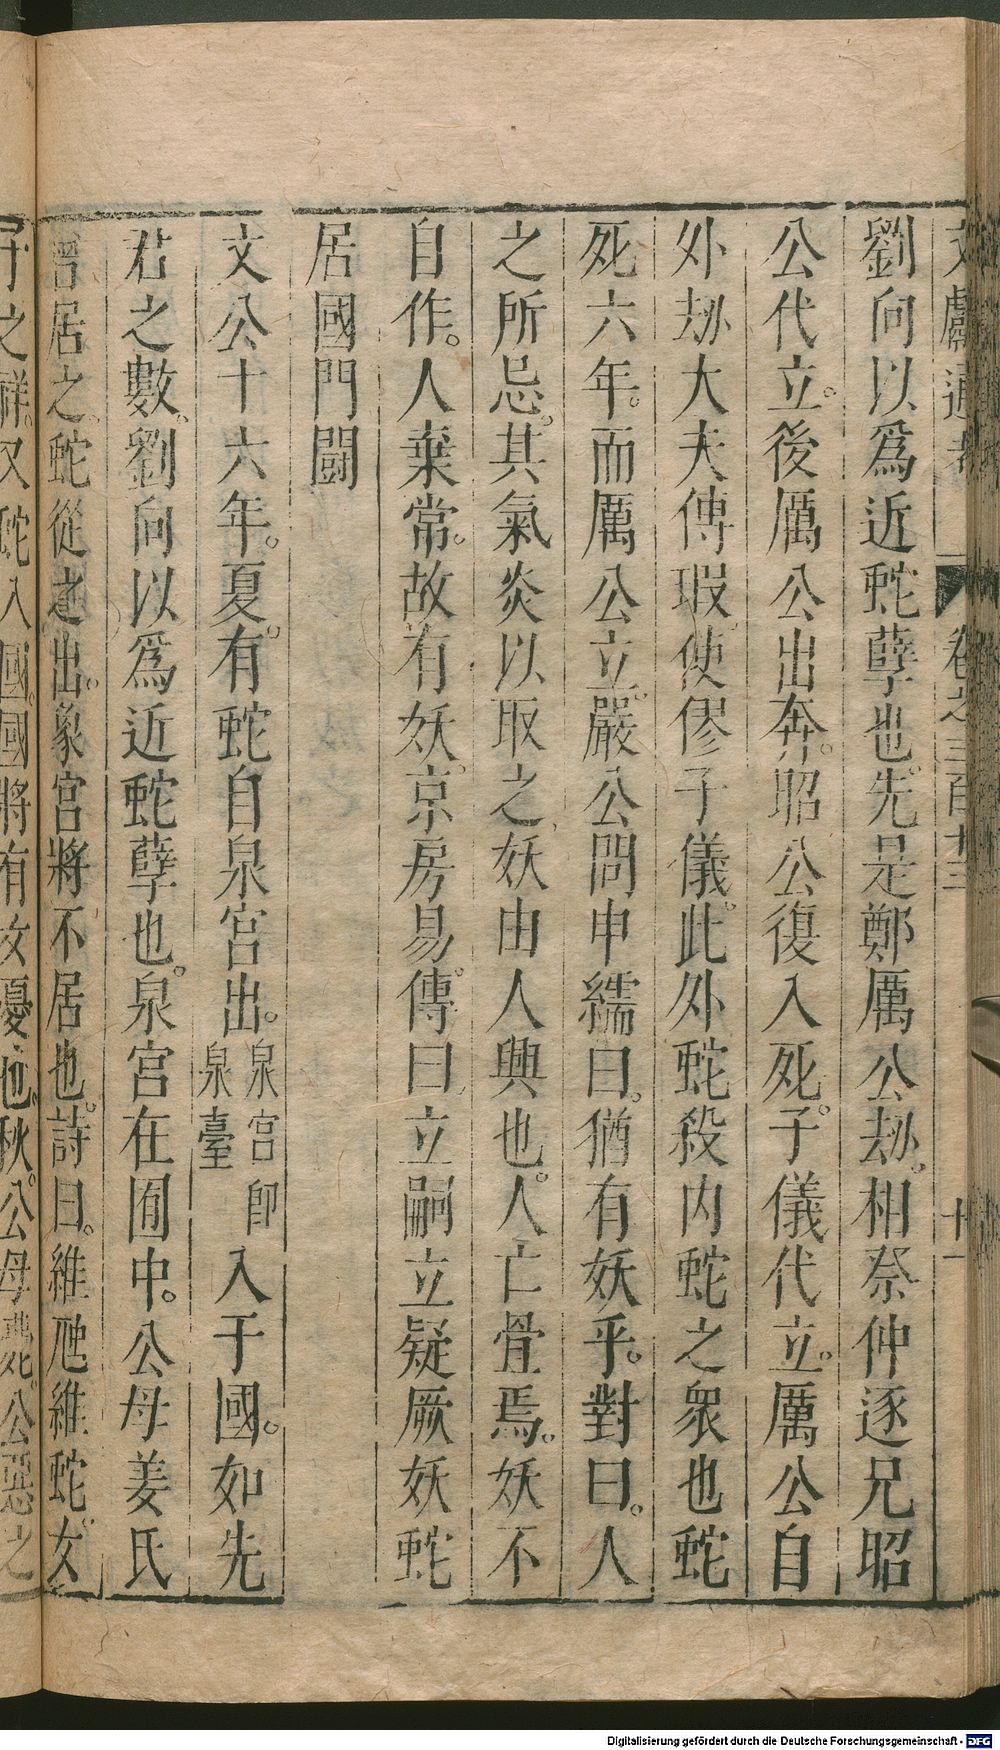 文獻通考　卷之三百十三　十一
劉向以爲近蛇孽也。先是鄭厲公劫。相祭仲逐兄昭
公代立。後厲公出奔。昭公復入死。子儀代立。厲公自
外劫大夫傅瑕使僇子儀。此外蛇殺内蛇之衆也蛇
死六年。而厲公立。嚴公問申繻曰。猶有妖乎。對曰。人
之所忌。其氣炎以取之妖由人興也。人亡舋焉。妖不
自作。人棄常。故有妖。京房易傳曰立嗣立疑厥妖蛇
居國門鬭
文公十六年。夏。有蛇自泉宮出。泉宮 郎泉臺入于國。如先
君之數。劉向以爲近蛇孽也。泉宮在囿中。公母姜氏
嘗居之。蛇從之出。象宮將不居也。詩曰。維虺維蛇女
子之祥。又蛇入國。國將有女憂也。秋。公母薨。公惡之
Digitalisierung gefördert durch die Deutsche Forschungsgemeinschaft - DFG